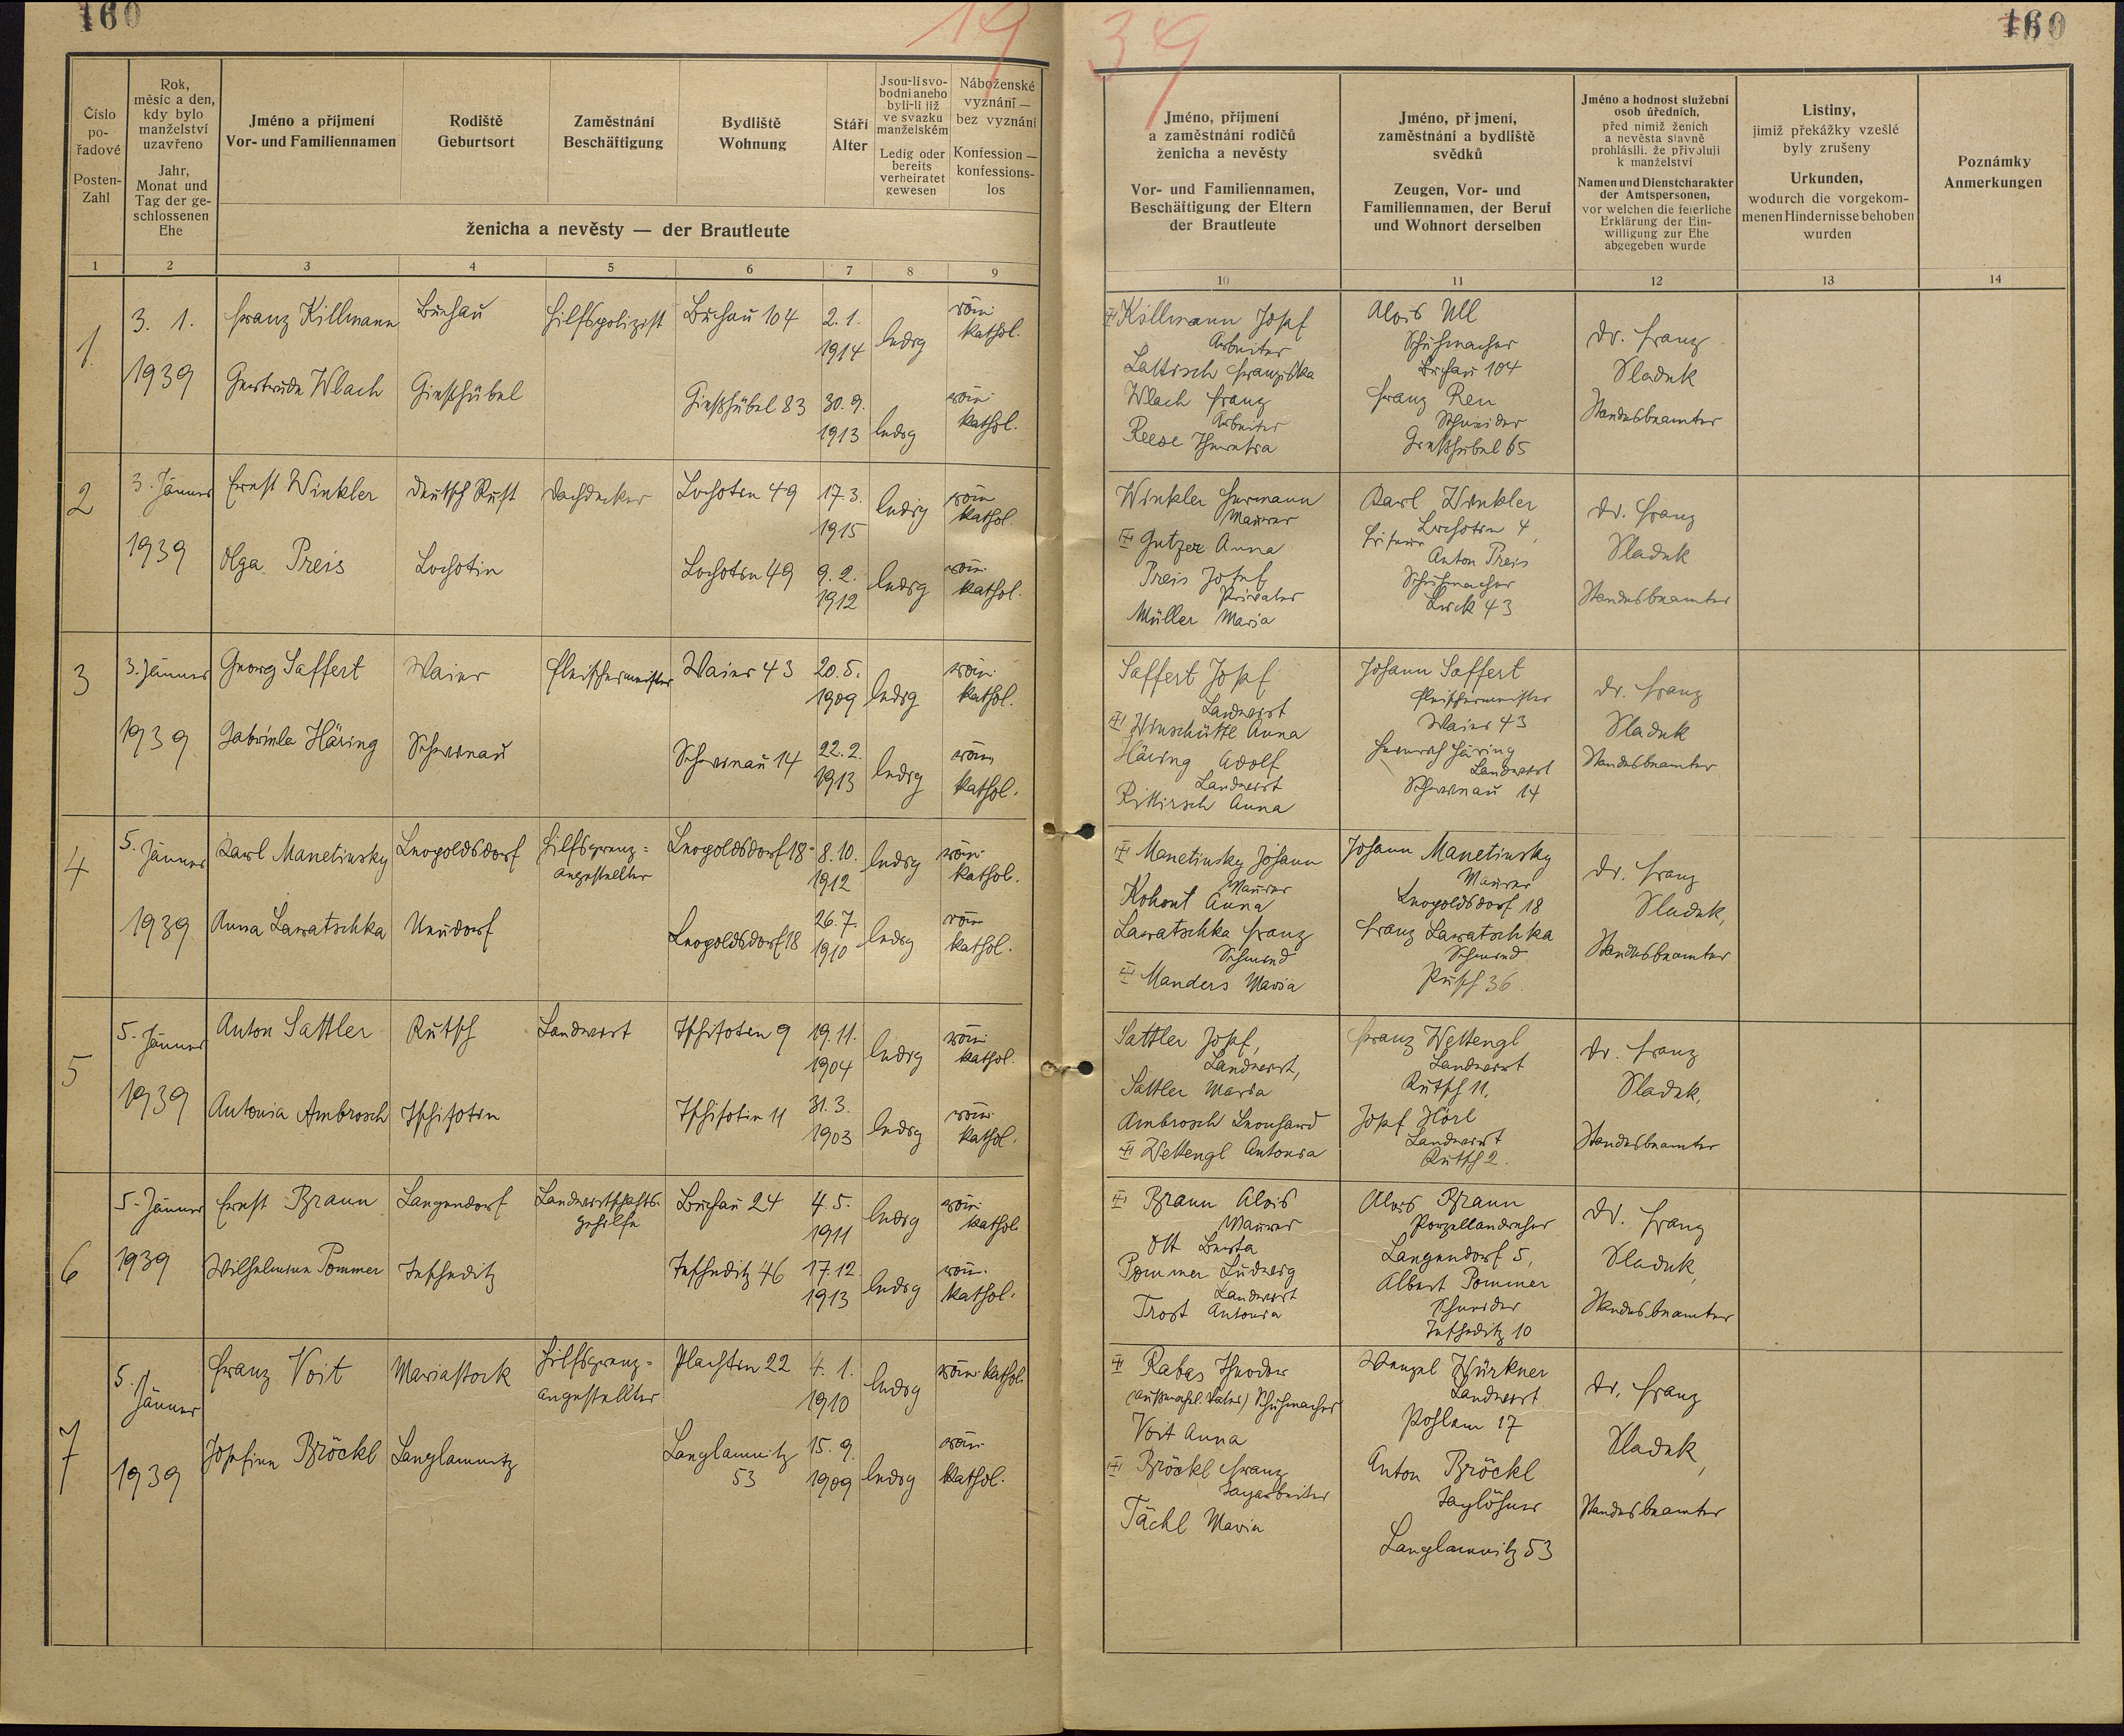 160
19
39
160
Číslo
po-
řadové
Posten-
Zahl
Rok,
měsíc a den,
kdy bylo
manželství
uzavřeno
Jahr,
Monat und
Tag der ge-
schlossenen
Ehe
Jméno a příjmení
Vor- und Familiennamen
Rodiště
Geburtsort
Zaměstnání
Beschäftigung
Bydliště
Wohnung
Stáří
Alter
Jsou-li svo-
bodni anebo
byli-li již
ve svazku
manželském
Ledig oder
bereits
verheiratet
gewesen
Náboženské
vyznání —
bez vyznání
Konfession —
konfessions-
los
ženicha a nevěsty — der Brautleute
Jméno, příjmení
a zaměstnání rodičů
ženicha a nevěsty
Vor- und Familiennamen,
Beschäftigung der Eltern
der Brautleute
Jméno, př jmení,
zaměstnání a bydliště
svědků
Zeugen, Vor- und
Familiennamen, der Beruf
und Wohnort derselben
Jméno a hodnost služební
osob úředních,
před nimiž ženich
a nevěsta slavně
prohlásili, že přivolují
k manželství
Namen und Dienstcharakter
der Amtspersonen,
vor welchen die feierliche
Erklärung der Ein-
willigung zur Ehe
abgegeben wurde
Listiny,
jimiž překážky vzešlé
byly zrušeny
Urkunden,
wodurch die vorgekom-
menen Hindernisse behoben
wurden
Poznámky
Anmerkungen
1 2 3 4 5 6 7 8 9 10 11 12 13 14
1.
3. 1.
1939
Franz Killmann
Buchau
Hilfspolizist
Buchau 104
2. 1.
1914
ledig
röm.
kathol.
Gertrude Wlach
Gießhübel
Gießhübel 83
30. 9.
1913
ledig
röm.
kathol.
Killmann Josef
Arbeiter
Lattisch Franziska
Wlach Franz
Arbeiter
Reese Theresia
Alois Ull
Schuhmacher
Buchau 104
Franz Reu
Schneider
Gießhübel 65
Dr. Franz
Sladek
Standesbeamter
2
3. Jänner
1939
Ernst Winkler
Deutsch Rust
Dachdecker
Lochotin 49
17. 3.
1915
ledig
röm
kathol.
Olga Preis
Lochotin
Lochotin 49
9. 2.
1912
ledig
röm.
kathol.
Winkler Hermann
Maurer
Gutzer Anna
Preis Josef
Privater
Müller Maria
Karl Winkler
Lochotin 4,
Friseur
Anton Preis
Schuhmacher
Luck 43
Dr. Franz
Sladek
Standesbeamter
3
3. Jänner
1939
Georg Saffert
Waier
Fleischermeister
Waier 43
20. 5.
1909
ledig
röm.
kathol.
Gabriele Häring
Schwinau
Schwinau 14
22. 2.
1913
ledig
röm
kathol.
Saffert Josef
Landwirt
Winschüttl Anna
Häring Adolf
Landwirt
Rittirsch Anna
Johann Saffert
Fleischermeister
Waier 43
Heinrich Häring
Landwirt
Schwinau 14
Dr. Franz
Sladek
Standesbeamter
4
5. Jänner
1939
Karl Manetinsky
Leopoldsdorf
Hilfsgrenz=
angestellter
Leopoldsdorf 18
8. 10.
1912
ledig
röm.
kathol.
Anna Lawatschka
Neudorf
Leopoldsdorf 18
26. 7.
1910
ledig
röm
kathol.
Manetinsky Johann
Maurer
Kohout Anna
Lawatschka Franz
Schmied
Manders Maria
Johann Manetinsky
Maurer
Leopoldsdorf 18
Franz Lawatschka
Schmied
36.
Dr. Franz
Sladek,
Standesbeamter
5
5. Jänner
1939
Anton Sattler
Rutsch
Landwirt
Tschihotin 9
19. 11.
1904
ledig
röm.
kathol.
Antonia Ambrosch
Tschihotin
Tschihotin 11
31. 3.
1903
ledig
röm.
kathol.
Sattler Josef,
Landwirt,
Sattler Maria
Ambrosch Leonhard
Wettengl Antonia
Franz Wettengl
Landwirt
Rutsch 11,
Josef Hörl
Landwirt
Rutsch 2.
Dr. Franz
Sladek,
Standesbeamter
6
5. Jänner
1939
Ernst Braun
Langendorf
Landwirtschafts-
gehilfe
Buchau 24
4. 5.
1911
ledig
röm.
kathol.
Wilhelmine Pommer
Tescheditz
Tescheditz 46
17. 12.
1913
ledig
röm.
kathol.
Braun Alois
Maurer
Ott Berta
Pommer Ludwig
Landwirt
Trost Antonia
Alois Braun
Porzellandreher
Langendorf 5,
Albert Pommer
Schneider
Tescheditz 10
Dr. Franz
Sladek,
Standesbeamter
7
5.
Jänner
1939
Franz Voit
Mariastock
Hilfsgrenz=
angestellter
Plachtin 22
4. 1.
1910
ledig
röm. kathol.
Josefine Bröckl
Langlamnitz
Langlamnitz
53
15. 9.
1909
ledig
röm.
kathol.
Rabas Theodor
(außerehel. Vater) Schuhmacher
Voit Anna
Bröckl Franz
Tagarbeiter
Tächl Maria
Wenzel Würkner
Landwirt
Pohlem 17
Anton Bröckl
Taglöhner
Langlamnitz 53
Dr. Franz
Sladek,
Standesbeamter